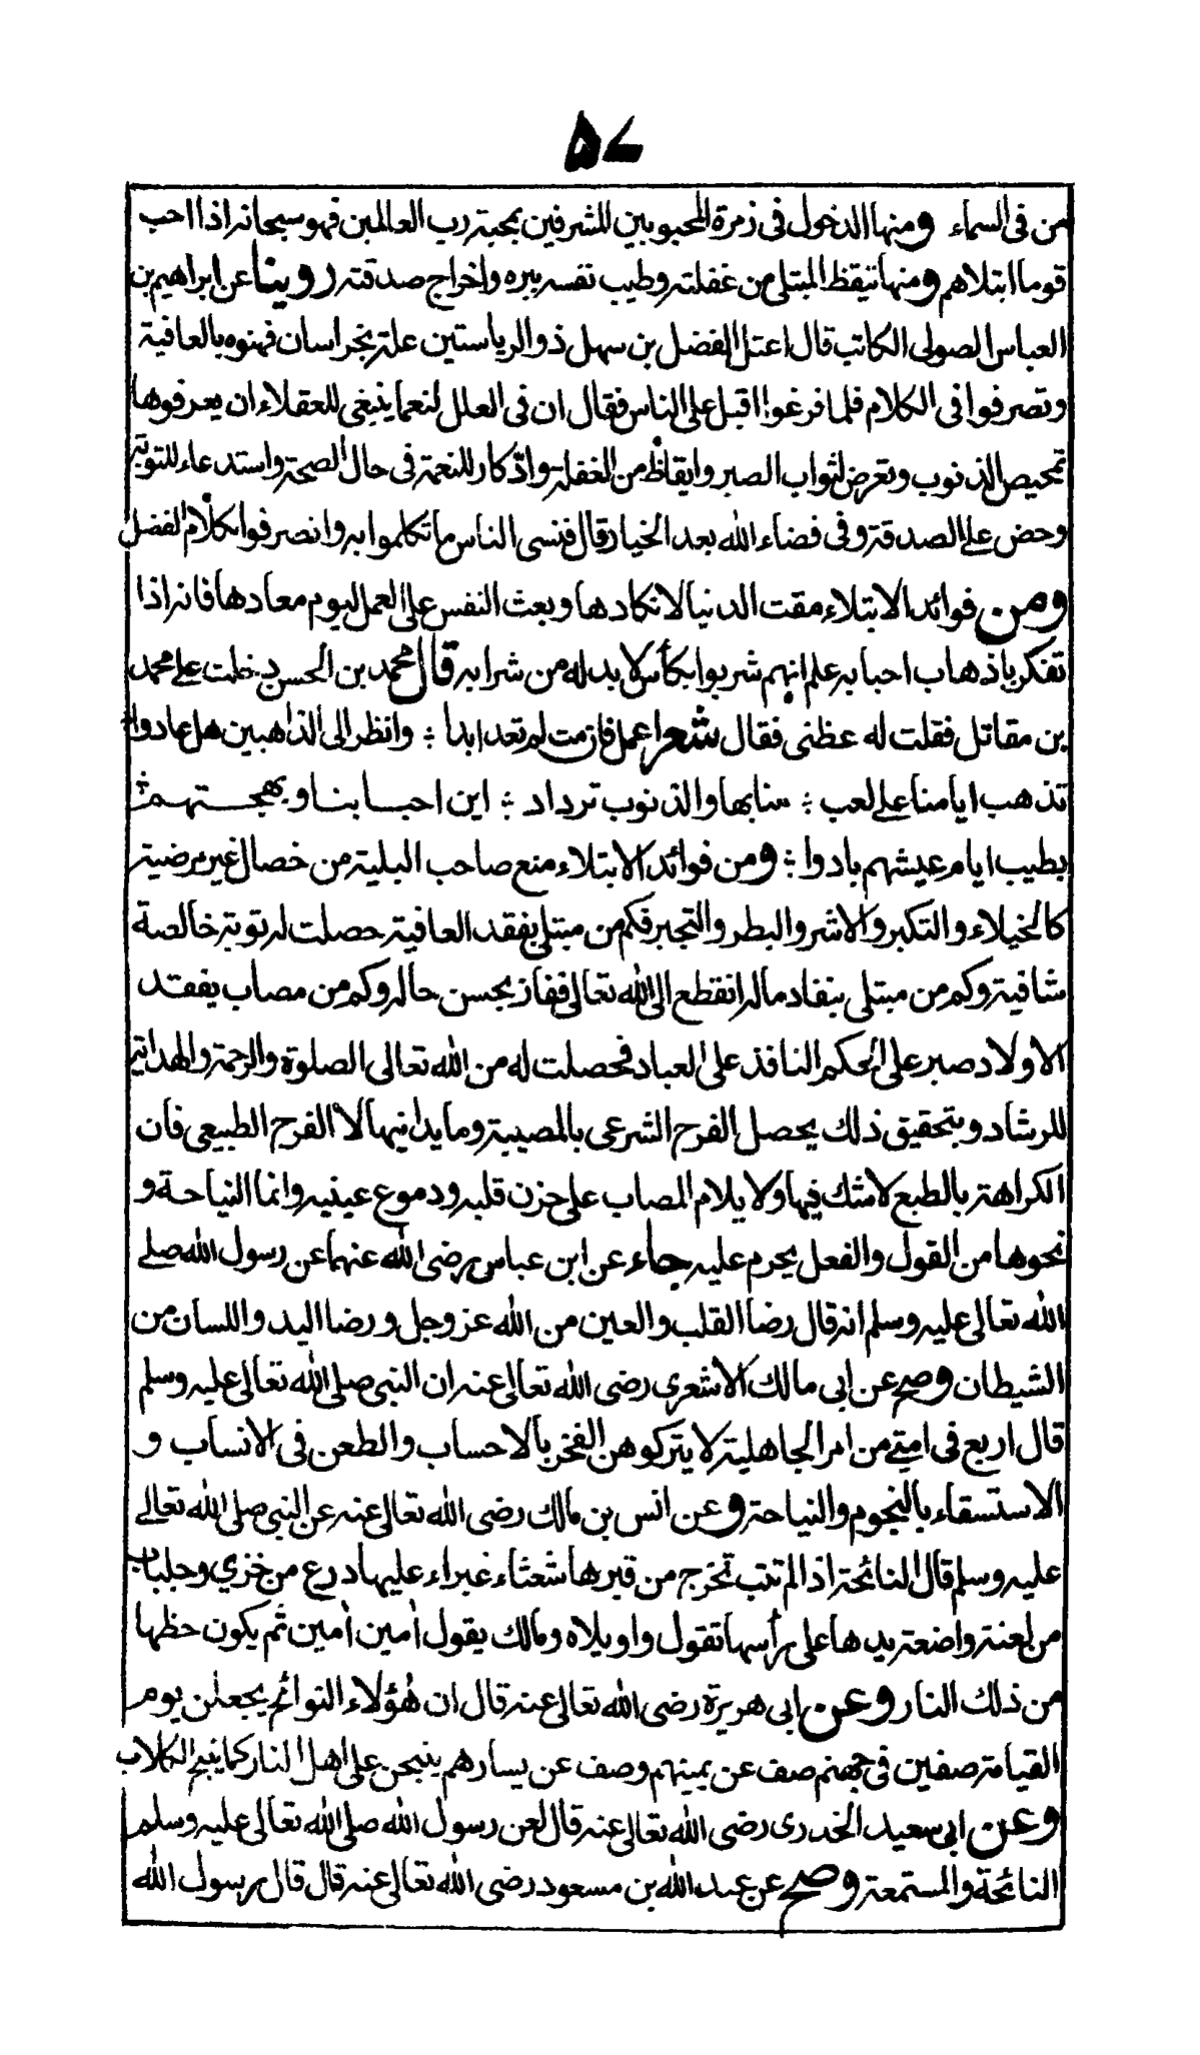 ۵۷
من فى السماء ومنها الدخول فى زمرة المحبوبين المشرفين بمحبة رب العالمين فهو سبحانه اذا احب
قوما ابتلاهم ومنها تيقظ المبتلى من غفلته وطيب نفسه ببره واخراج صدقته روينا عن ابراهيم بن
العباس الصولى الكاتب قال اعتل الفضل بن سهل ذو الرياستين علة بخراسان فهنوه بالعافية
وتصرفوا فى الكلام فلما فرغوا اقبل على الناس فقال ان فى العلل لنعما ينبغى للعقلاء ان يعرفوها
تمحيص الذنوب وتعرض لثواب الصبر وايقاظ من الغفلة واذكار للنعمة فى حال الصحة واستدعاء للتوبة
وحض على الصدقة وفى قضاء الله بعد الخيار قال فنسى الناس ما تكلموا به وانصرفوا بكلام الفضل
ومن فوائد الابتلاء مقت الدنيا لانكادها وبعث النفس على العمل ليوم معادها فانه اذا
تفكر باذهاب احبابه علم انهم شربوا بكأس لا بد له من شرابه قال محمد بن الحسن دخلت على محمد
بن مقاتل فقلت له عظنى فقال شعر اعمل فان مت لم تعد ابدا ؛ وانظر الى الذاهبين هل عادوا ؛
تذهب ايامنا على لعب ؛ منا بها والذنوب ترداد ؛ اين احبابنا وبهجتهم ؛
بطيب ايام عيشهم بادوا ؛ ومن فوائد الابتلاء منع صاحب البلية من خصال غير مرضية
كالخيلاء والتكبر والاشر والبطر والتجبر فكم من مبتلى بفقد العافية حصلت له توبة خالصة
شافية وكم من مبتلى بنفاد ماله انقطع الى الله تعالى ففاز بحسن حاله وكم من مصاب بفقد
الاولاد صبر على الحكم النافذ على العباد فحصلت له من الله تعالى الصلوة والرحمة والهداية
للرشاد وبتحقيق ذلك يحصل الفرح الشرعى بالمصيبة وما يدانيها لا الفرح الطبيعى فان
الكراهة بالطبع لا شك فيها ولا يلام المصاب على حزن قلبه ودموع عينيه وانما النياحة و
نحوها من القول والفعل يحرم عليه جاء عن ابن عباس رضى الله عنهما عن رسول الله صلى
الله تعالى عليه وسلم انه قال رضا القلب والعين من الله عز وجل ورضا اليد واللسان من
الشيطان وصح عن ابى مالك الاشعرى رضى الله تعالى عنه ان النبى صلى الله تعالى عليه وسلم
قال اربع فى امتى من امر الجاهلية لا يتركوهن الفخر بالاحساب والطعن فى الانساب و
الاستسقاء بالنجوم والنياحة وعن انس بن مالك رضى الله تعالى عنه عن النبى صلى الله تعالى
عليه وسلم قال النائحة اذا لم تتب تخرج من قبرها شعثاء غبراء عليها درع من خزي وجلباب
من لعنة واضعة يدها على رأسها تقول واويلاه ومالك يقول اٰمين اٰمين ثم يكون حظها
من ذلك النار وعن ابى هريرة رضى الله تعالى عنه قال ان هٰؤلاء النوائح يجعلن يوم
القيامة صفين فى جهنم صف عن يمينهم وصف عن يسارهم ينبحن على اهل النار كما ينبح الكلاب
وعن ابى سعيد الخدرى رضى الله تعالى عنه قال لعن رسول الله صلى الله تعالى عليه وسلم
النائحة والمستمعة وصح عن عبد الله بن مسعود رضى الله تعالى عنه قال قال رسول الله